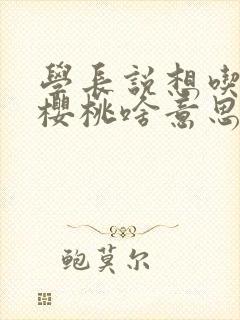 學長説想喫
櫻桃啥意思
鲍莫尔